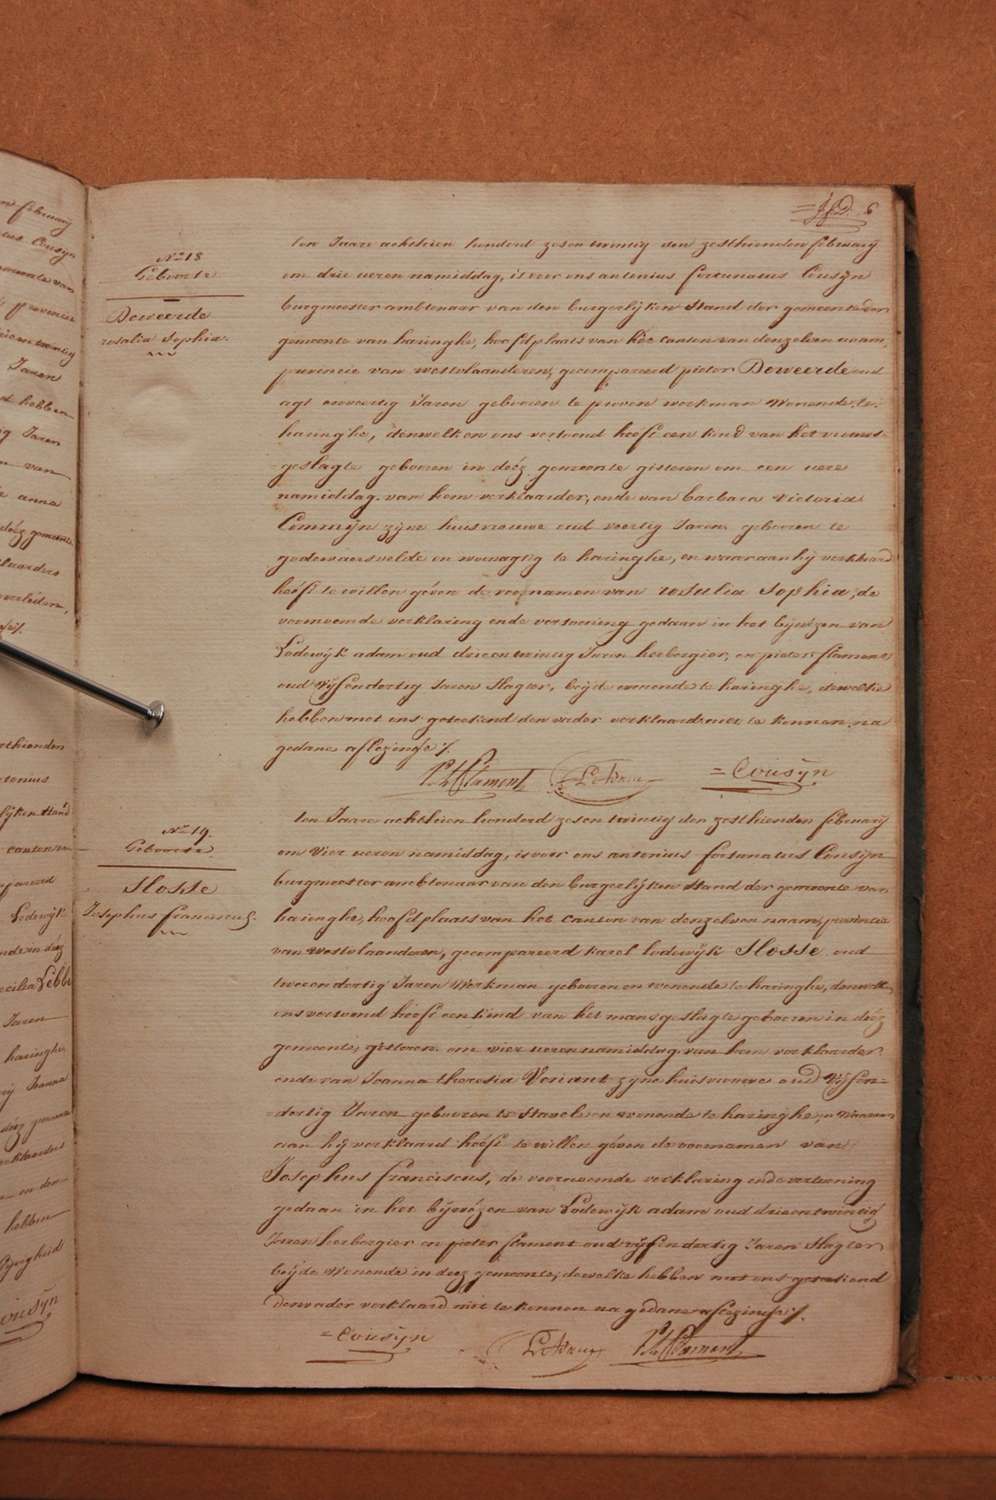 6
Nº 18
Geboorte
Deweerde
rosalia Sophia.
ten Jaare achttien hondert zesen twintig den zesthienden february
om drie ueren namiddag, is voor ons antonius fortunatus Cousyn
burgmeester ambtenaar van den burgerlyken Stand der gemeente der
gemeente van haringhe, hoofdplaats van het canton van denzelven naam,
provincie van westvlaanderen, gecompareerd pieter Deweerde oud
agt en veertig Jaren gebooren te proven werkman Wonende te
haringhe, denwelken ons vertoond heeft een kind van het vrouwe-
geslagte gebooren in déez gemeente gisteren om een uere
namiddag van hem verklaarder, ende van barbara victoria
Commyn zyne huisvrouwe oud veertig Jaren gebooren te
godewaersvelde en woonagtig te haringhe, en waaraan hy verklaard
heeft te willen géven de voornamen van rosalia Sophia, de
voornoemde verklaring ende vertooning gedaan in het bywézen van
Lodewyk adam oud drieentwintig Jaren herbergier, en pieter flament
oud vyfendertig Jaren Slagter, beyde wonende te haringhe, dewelke
hebben met ons geteekend den vader verklaard niet te konnen na
gedane aflezinge ./.
P. J. Flament L. Adam = Cousyn
Nº 19.
Geboorte
Slosse
Josephus franciscus.
ten Jaare achttien honderd zesen twintig den zesthienden february
om Vier ueren namiddag, is voor ons antonius fortunatus Cousyn
burgmeester ambtenaar van den burgerlyken Stand der gemeente van
haringhe, hoofdplaats van het canton van denzelven naam, provincie
van westvlaanderen, gecompareerd karel lodewyk Slosse oud
tweeendertig Jaren Werkman gebooren en wonende te haringhe, denwelk
ons vertoond heeft een kind van het mansgeslagte gebooren in déez
gemeente, gisteren om vier ueren namiddag van hem verklaarder
ende van Joanna theresia Veriant zyne huisvrouwe oud Vyfen-
dertig Jaren gebooren te Stavele en wonende te haringhe, en Waaraan
aan hy verklaard heeft te willen géven de voornamen van
Josephus franciscus, de voornoemde verklaring ende vertooning
gedaan in het bywézen van Lodewyk adam oud drieentwintig
Jaren herbergier en pieter flament oud vyfendertig Jaren Slagter
beyde Wonende in deez gemeente, dewelke hebben met ons geteekend
den vader verklaard niet te konnen na gedane aflezinge ./.
= Cousyn L. Adam P. J. Flament